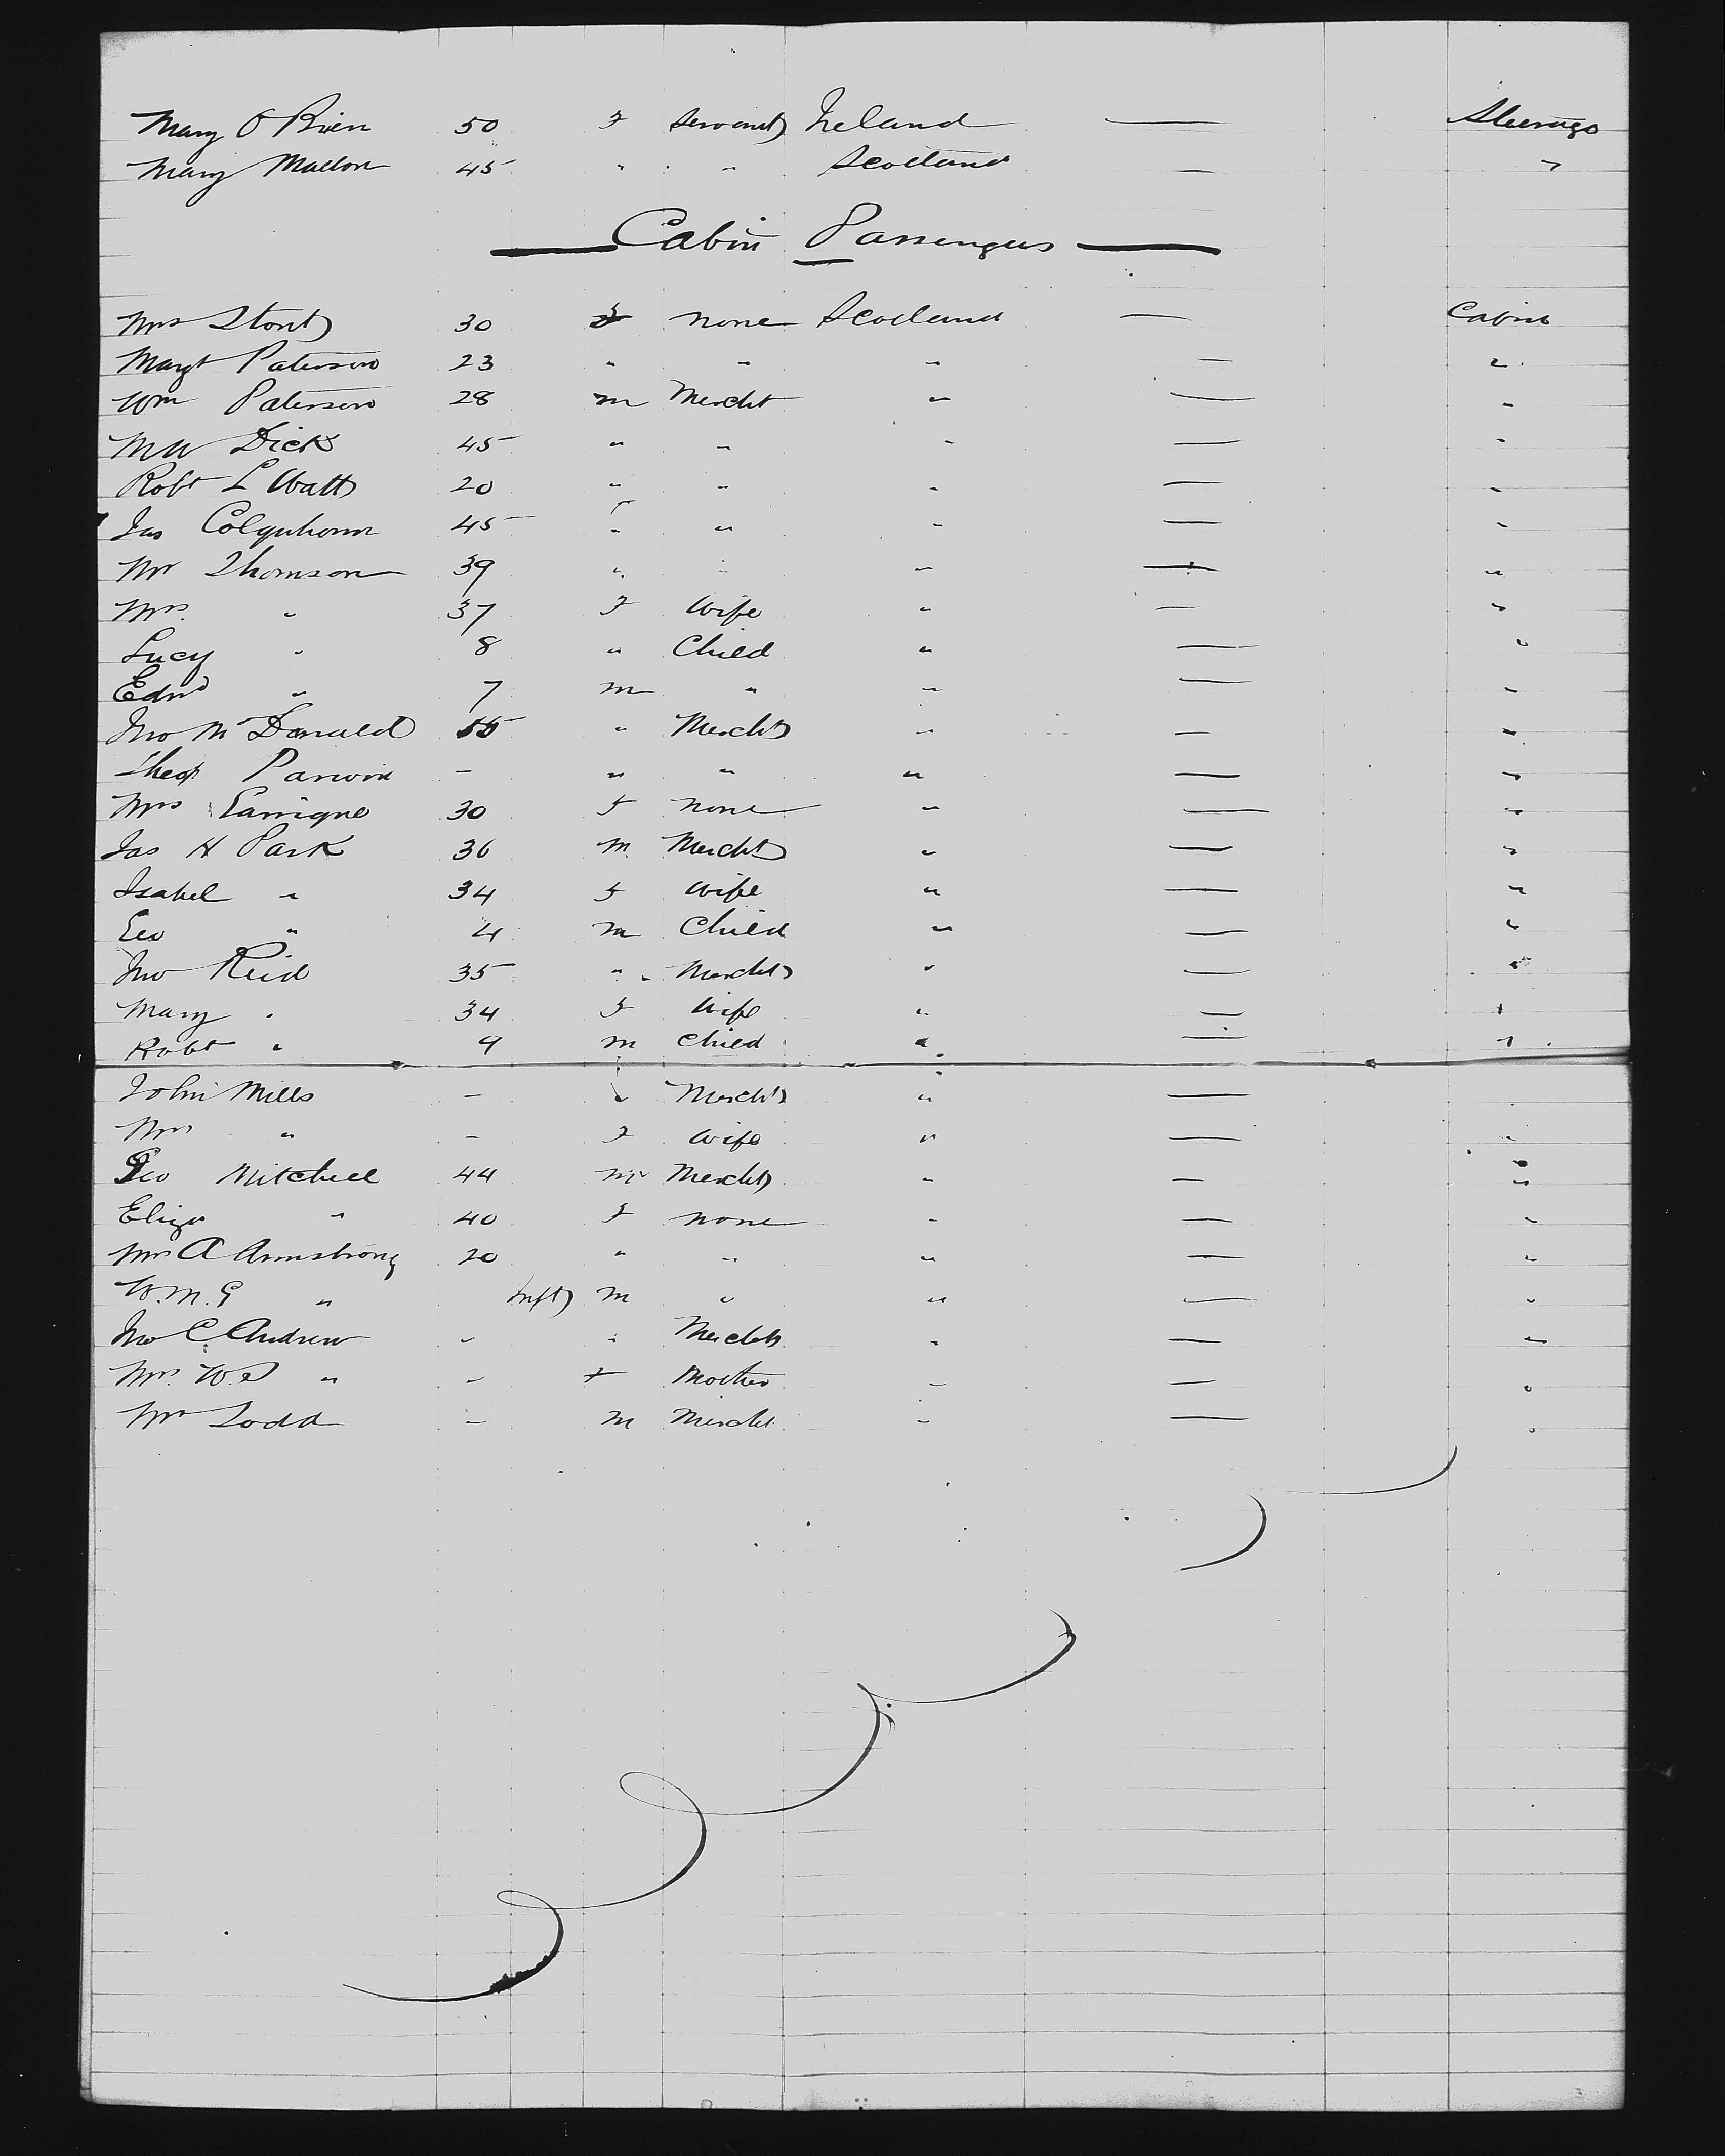 Mary O Brien 50 F Servant Ireland — Steerage
Mary Mallon 45 " " Scotland — "
Cabin Passengers
Mrs Stout 30 F none Scotland — Cabin
Margt Paterson 23 " " " — "
Wm Paterson 28 m Mercht " — "
Mr Dick 45 " " " — "
Robt L Watt 20 " " " — "
Jas Colquhoun 45 " " " — "
Mr Thomson 39 " " " — "
Mrs " 37 F Wife " — "
Lucy " 8 " Child " — "
Edwd " 7 m " " — "
Jno McDonald 55 " Mercht " — "
Parwin - " " " — "
Mrs Garrique 30 F none " — "
Jas H Park 36 m Mercht " — "
Isabel " 34 F Wife " — "
Geo " 4 m Child " — "
Jno Reid 35 " Mercht " — "
Mary " 34 F Wife " — "
Robt " 9 m Child " — "
John Mills - " Mercht " — "
Mrs " - F Wife " — "
Geo Mitchell 44 m Mercht " — "
Eliza " 40 F none " — "
Mrs A Armstrong 20 " " " — "
W.M.G " Inft m " " — "
Jno C Andrew - " Mercht " — "
Mrs W.S " - F Mother " — "
Mr Todd - m Mercht " — "